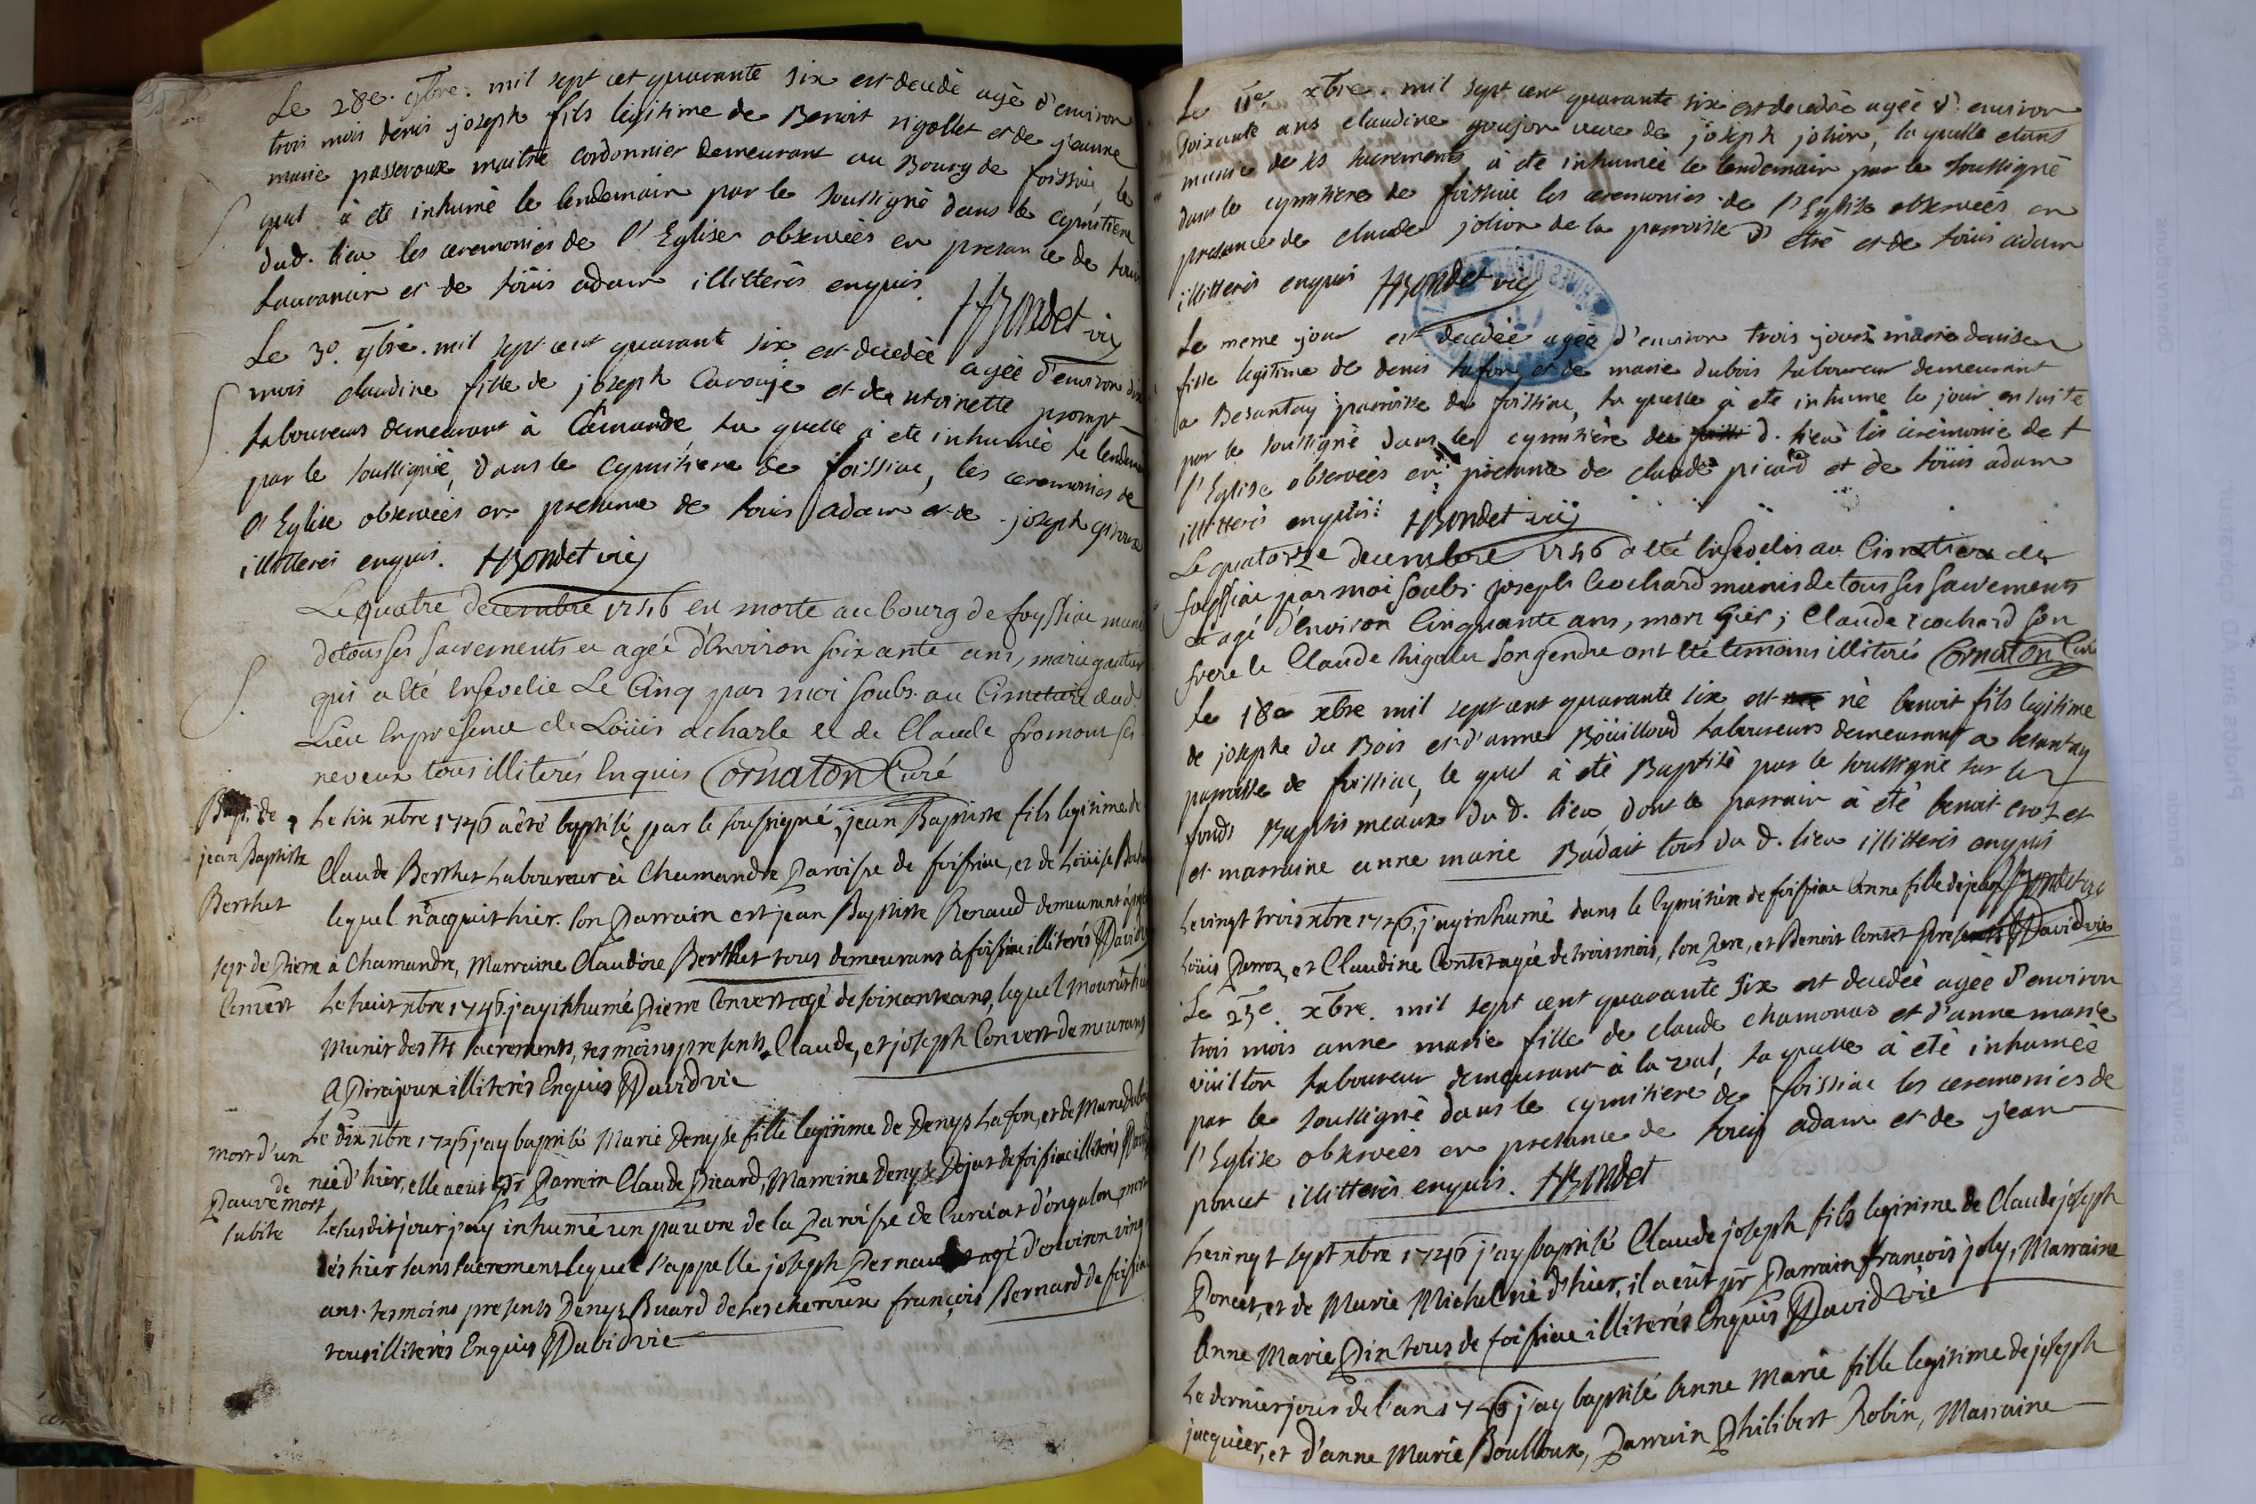 Le 28e. 9bre. mil sept cet quarante six est decedé agé d'environ
trois mois denis joseph fils legitime de Benoit rigollet et de jeanne
marie passeroux maitre cordonnier demeurant au Bourg de foissiat, le
quel à eté inhumé le lendemain par le soussigné dans le cymitiere
dud. lieu les ceremonies de l'Eglise observées en presance de
et de loüis adam illitterés enquis. HBondet vic
Le 30. 9bre. mil sept cent quarante six est decedée agée d'environ
mois claudine fille de joseph Carouje et de antoinette prompt
laboureurs demeurant à Camandre la quelle à eté inhumée le lendem
par le soussigné, dans le cymitiere de foissiac, les ceremonies de
l'Eglise observées en presance de louis adam et de joseph
illitterés enquis. HBondet vic
Le quatre decembre 1746 est morte au bourg de foyssiac munie
de tous ses sacrements et agée d'Environ soixante ans, marie
qui a été Ensevelie Le Cinq par moi soubs. au Cimetiere dud.
Lieu En présence de Loüis acharle et de Claude fromont ses
neveux tous illiterés Enquis Cornaton Curé
Bapt. de
jean Baptiste
Berthet
Le six xbre 1746 a été baptisé par le soussigné, jean Baptiste fils legitime de
Claude Berthet Laboureur à Chamandre Paroisse de foissiac, et de Loüise
lequel n'acquit hier. Son Parrain est jean Baptiste Renaud demeurant
à Chamandre, Marraine Claudine Berthet tous demeurans à foissiac illiterés David
sepr de Pierre
Convert
Le huit xbre 1746 j'ay inhumé Pierre Convert agé de soixante ans, lequel mourut hier
Munir des Sts sacrements, tesmoins presents Claude, et joseph Convert demeurans
A Pirajoux illiterés Enquis David vic
Le dix xbre 1746 j'ay baptisé Marie Denyse fille legitime de Denys Lafon, et de Marie Dubois
née d'hier, elle a eut pr Parrein Claude Picard, Marreine Denyse Dejus de foissiac illiterés
mort d'un
Pauvre de mort
subite
Le susdit jour j'ay inhumé un pauvre de la Paroisse de Curciat d'ongalon, mort
dés hier sans sacrement lequel s'appelle joseph agé d'environ vingt
ans. tesmoins presents Denys Buard de Lescheroux françois Bernard de foissiac
tous illiterés Enquis David vic
Le 11e. xbre. mil sept cent quarante six est decedée agée d'environ
soixante ans claudine goujon veuve de joseph jolion, la quelle etant
munie de ses sacrements, à eté inhumée le lendemain par le soussigné
dans le cymitiere de foissiac les ceremonies de l'Eglise observées en
presance de claude jolion de la parroisse d'etré et de loüis adam
illitterés enquis HBondet vic
Le meme jour est decedée agée d'environ trois jours marie denise
fille legitime de denis lafon et de marie dubois laboureur demeurant
a Besantay parroisse de foissiac, la quelle à eté inhume le jour ensuite
par le soussigné dans le cymitière du d. lieu les ceremonie de
l'Eglise observées en presance de claude picard et de loüis adam
illitterés enquis: HBondet vic
Le quatorze decembre 1746 a été Ensevelis au Cimetiere de
foissiac par moi soubs. joseph Cochard munis de tous ses sacrements
et agé d'Environ Cinquante ans, mort hier; Claude Cochard son
frere et Claude Rigolet son gendre ont été temoins illiterés Cornaton Curé
Le 18e xbre mil sept cent quarante six est né benoit fils legitime
de josephe du Bois et d'anne Boüilloud laboureurs demeurant a besantay
parroisse de foissiac, le quel à eté Baptisé par le soussigné sur le
fonds Baptismeaux du d. lieu dont le parrain à été benoit crot et
et marraine anne marie Badait tous du d. lieu illitterés enquis
HBondet vic
Le vingt trois xbre 1746, j'ay inhumé dans le Cymitiere de foissiac Anne fille de jean
Loüis Perroz, et Claudine Contet agée de trois mois, son Pere, et Benoit Contet presents David vic
Le 25e. xbre. mil sept cent quarante six est decedée agée d'environ
trois mois anne marie fille de claude chamonas et d'anne marie
viüilton laboureur demeurant à la val, la quelle à été inhumée
par le soussigné dans le cymitiere de foissiac les ceremonies de
l'Eglise observées en presance de loüis adam et de jean
poncet illitterés enquis. HBondet
Le vingt sept xbre 1746 j'ay baptisé Claude joseph fils legitime de Claude joseph
Poncet, et de Marie Michel né d'hier, il a eût pr Parrain françois joly, Marraine
Anne Marie Pin tous de foissiac illiterés Enquis David vic
Le dernier jour de l'an 1746 j'ay baptisé Anne Marie fille legitime de joseph
jacquier, et d'anne Marie Boulloux, Parrain Philibert Robin, Marraine